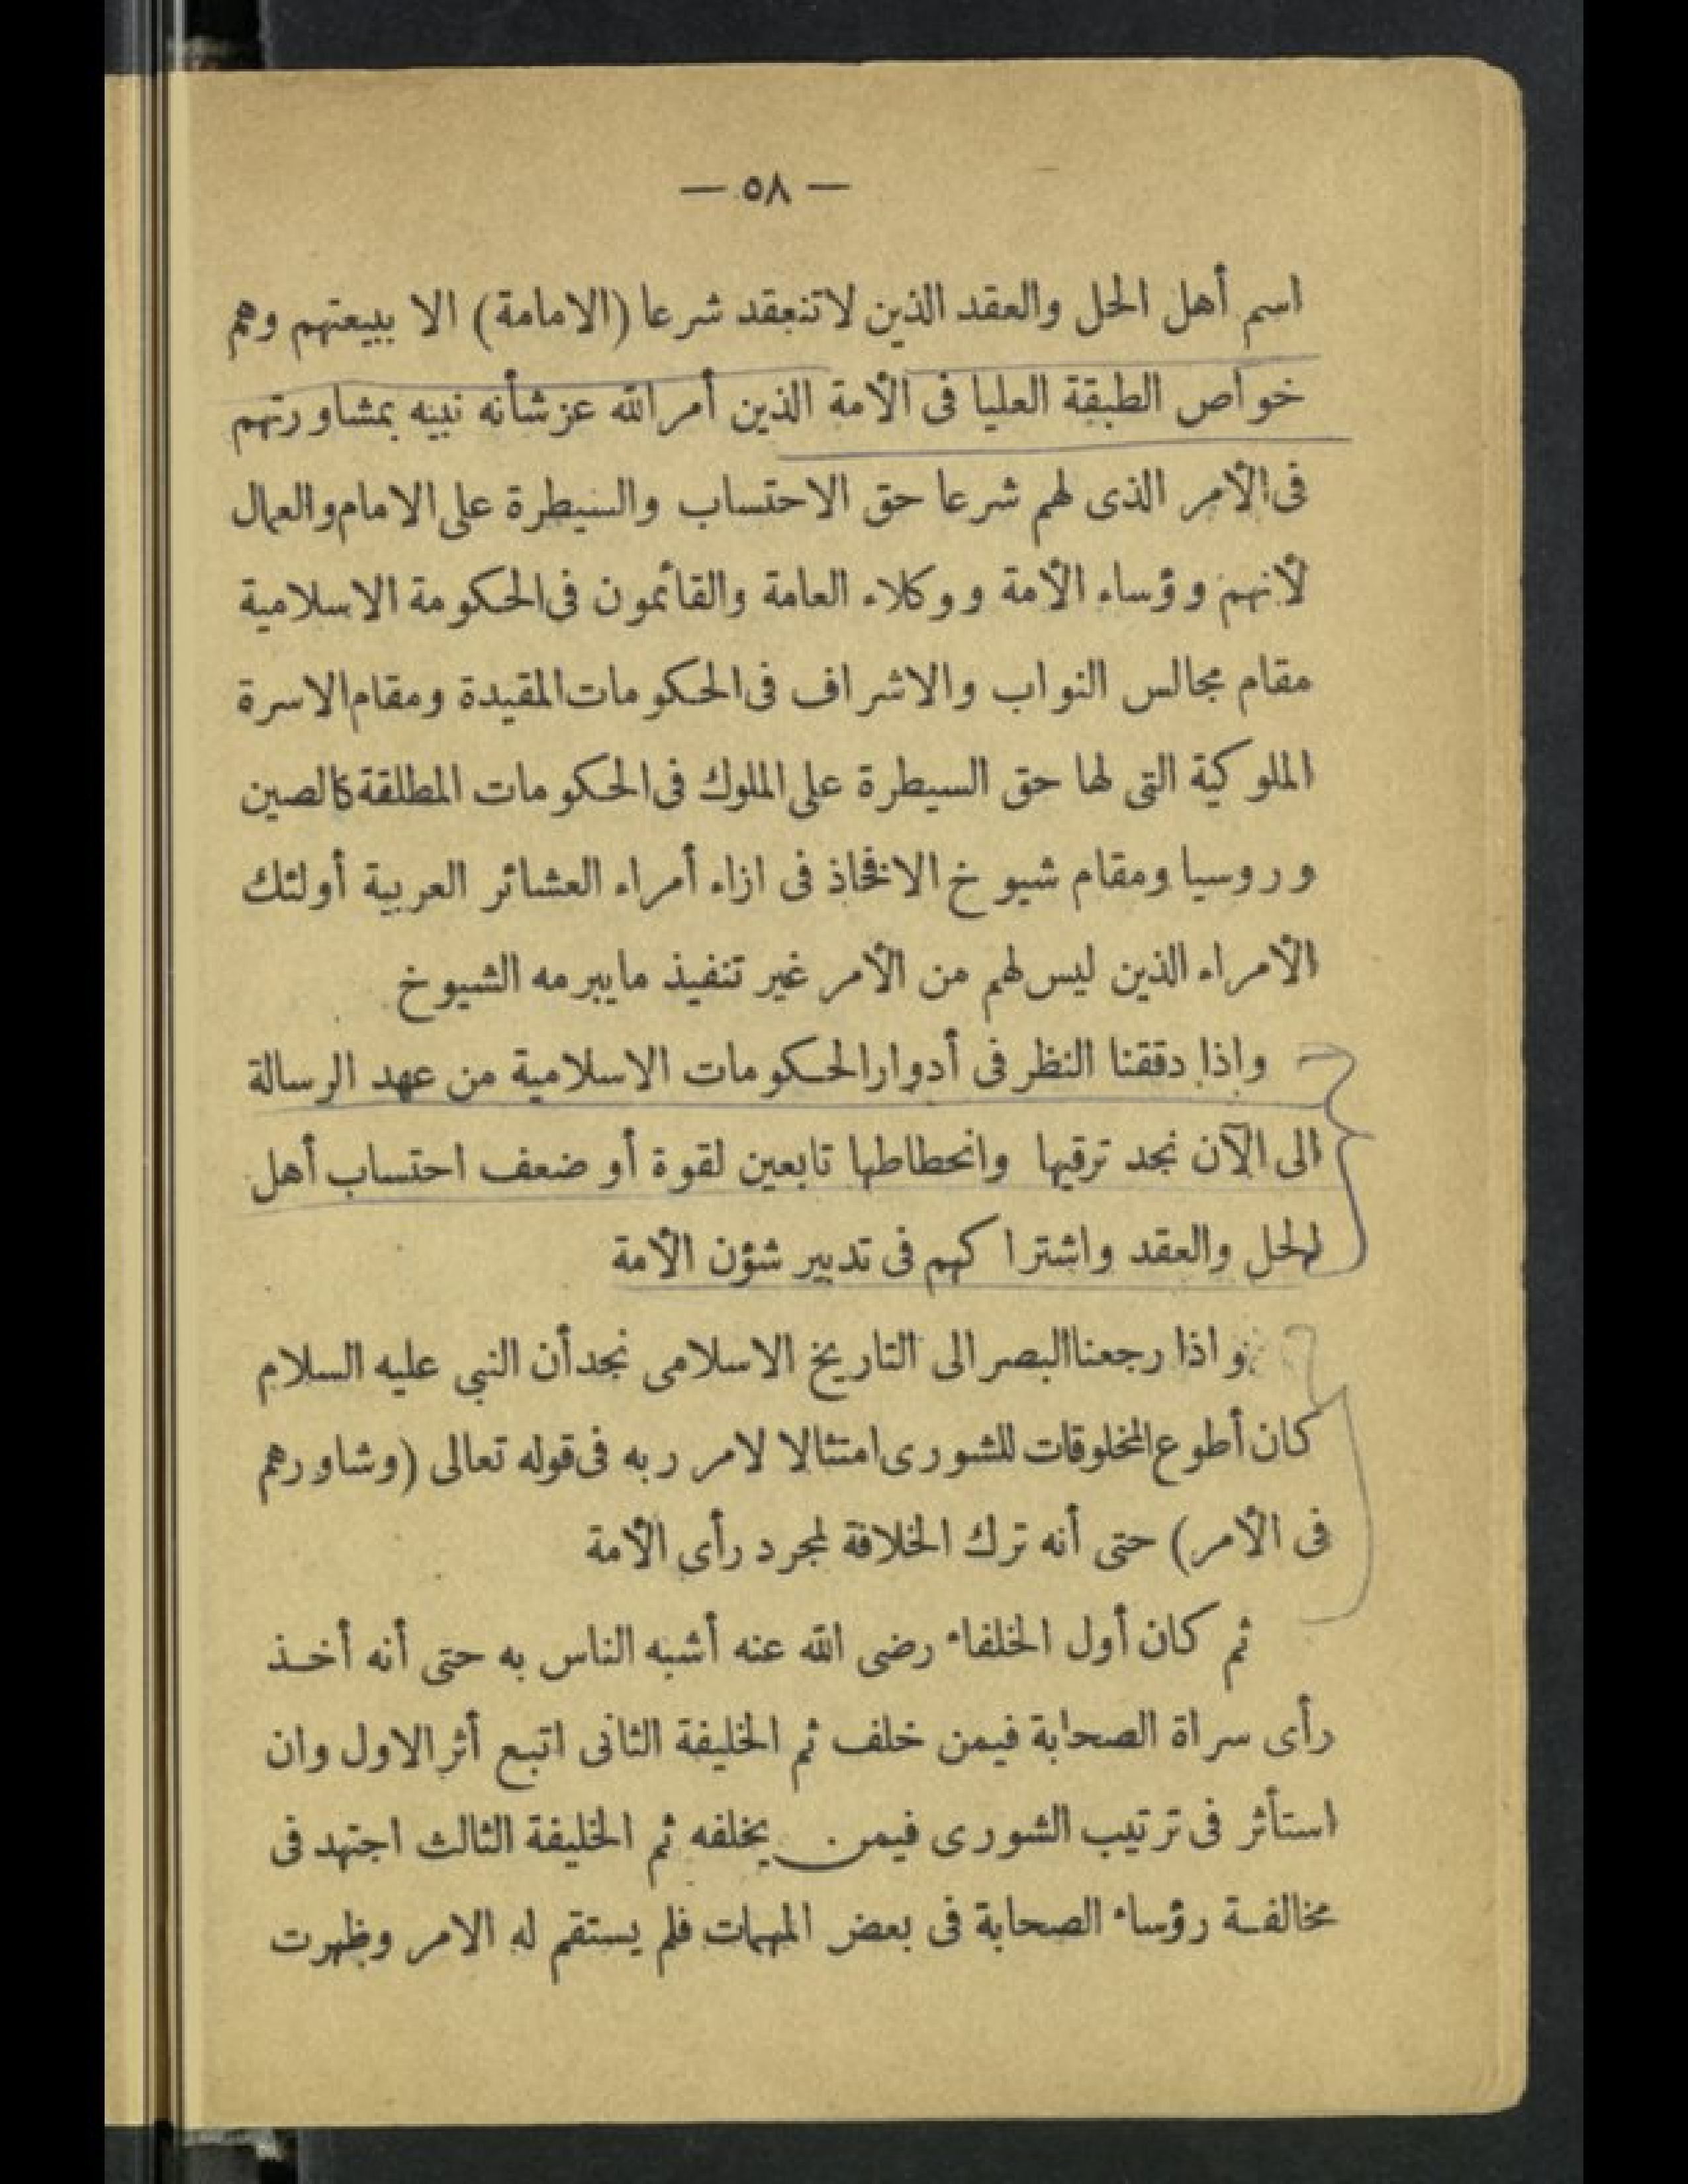 — ٥٨ —
اسم أهل الحل والعقد الذين لاتنعقد شرعا (الامامة) الا ببيعتهم وهم
خواص الطبقة العليا فى الأمة الذين أمر الله عز شأنه نبيه بمشاورتهم
فى الأمر الذى لهم شرعا حق الاحتساب والسيطرة على الامام والعمال
لأنهم رؤساء الأمة ووكلاء العامة والقائمون فى الحكومة الاسلامية
مقام مجالس النواب والاشراف فى الحكومات المقيدة ومقام الاسرة
الملوكية التى لها حق السيطرة على الملوك فى الحكومات المطلقة كالصين
وروسيا ومقام شيوخ الافخاذ فى ازاء أمراء العشائر العربية أولئك
الأمراء الذين ليس لهم من الأمر غير تنفيذ مايبرمه الشيوخ
واذا دققنا النظر فى أدوار الحكومات الاسلامية من عهد الرسالة
الى الآن نجد ترقيها وانحطاطها تابعين لقوة أو ضعف احتساب أهل
الحل والعقد واشتراكهم فى تدبير شؤن الأمة
واذا رجعنا البصر الى التاريخ الاسلامى نجد أن النبي عليه السلام
كان أطوع المخلوقات للشورى امتثالا لامر ربه فى قوله تعالى (وشاورهم
فى الأمر) حتى أنه ترك الخلافة لمجرد رأى الأمة
ثم كان أول الخلفاء رضى الله عنه أشبه الناس به حتى أنه أخذ
رأى سراة الصحابة فيمن خلف ثم الخليفة الثانى اتبع أثر الاول وان
استأثر فى ترتيب الشورى فيمن يخلفه ثم الخليفة الثالث اجتهد فى
مخالفة رؤساء الصحابة فى بعض المهمات فلم يستقم له الامر وظهرت